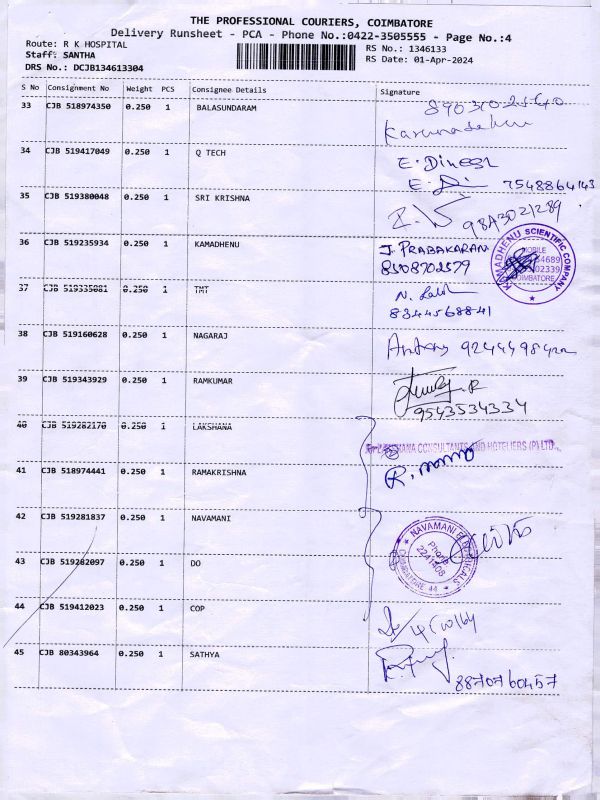 THE PROFESSIONAL COURIERS, COIMBATORE
Delivery Runsheet - PCA - Phone No.:0422-3505555 - Page No.:4
Route: R K HOSPITAL
Staff: SANTHA
DRS No.: DCJB134613304
RS No.: 1346133
RS Date: 01-Apr-2024
S No Consignment No Weight PCS Consignee Details Signature
33 CJB 518974350 0.250 1 BALASUNDARAM
34 CJB 519417049 0.250 1 Q TECH E. Dinesh
7548864143
35 CJB 519380048 0.250 1 SRI KRISHNA
36 CJB 519235934 0.250 1 KAMADHENU J. PRABAKARAN
8508702579
KAMADHENU SCIENTIFIC COMPANY
MOBILE
COIMBATORE
37 CJB 519335081 0.250 1 TMT
8344568841
38 CJB 519160628 0.250 1 NAGARAJ
39 CJB 519343929 0.250 1 RAMKUMAR
9543534334
40 CJB 519282170 0.250 1 LAKSHANA
For LAKSHANA CONSULTANTS AND HOTELIERS (P) LTD.,
41 CJB 518974441 0.250 1 RAMAKRISHNA
42 CJB 519281837 0.250 1 NAVAMANI
NAVAMANI
Phone
2241408
COIMBATORE 44
43 CJB 519282097 0.250 1 DO
44 CJB 519412023 0.250 1 COP
45 CJB 80343964 0.250 1 SATHYA
8870760457